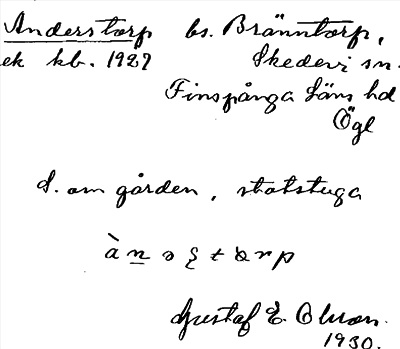 Anderstorp bs. Bränntorp,
ek kb. 1927 Skedevi sn.
Finspånga läns hd
Ögl
S. om gården, statstuga
Gustaf E. Olson.
1930.